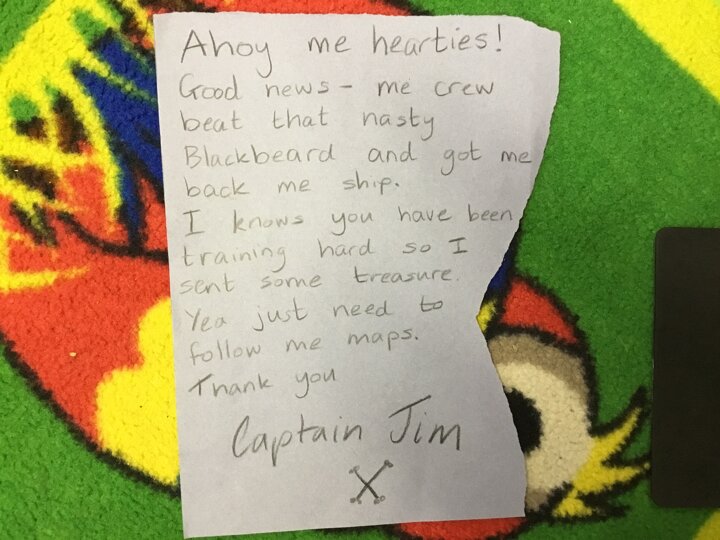 Ahoy me hearties!
Good news - me crew
beat that nasty
Blackbeard and got me
back me ship.
I knows you have been
training hard so I
sent some treasure.
Yea just need to
follow me maps.
Thank you
Captain Jim